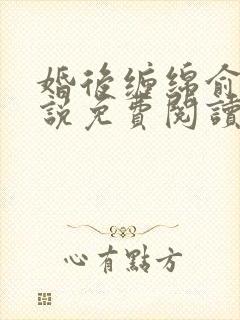 婚後纏綿俞
說免費閱讀
心有點方